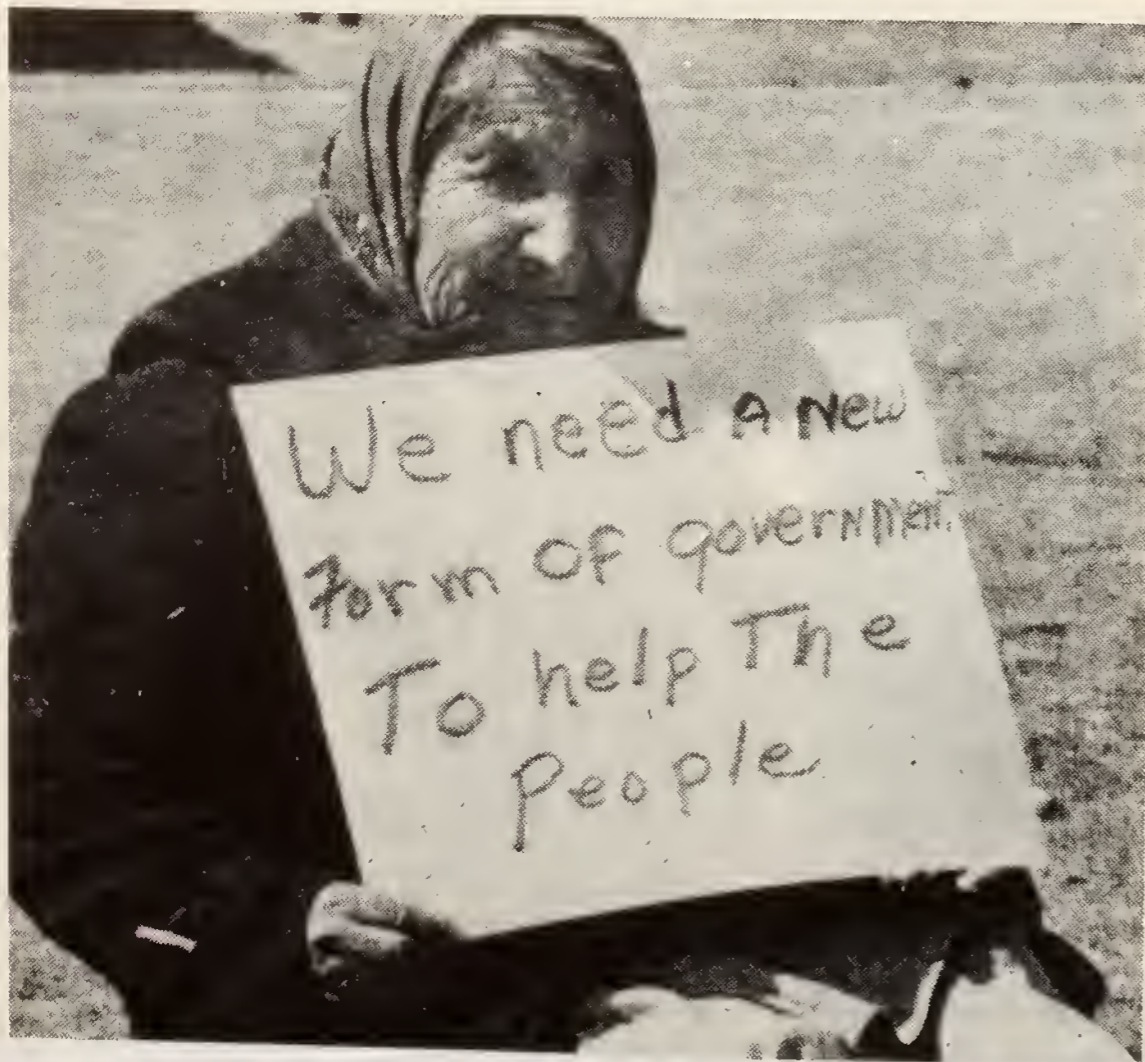 We need a New
Form of government
To help The
People